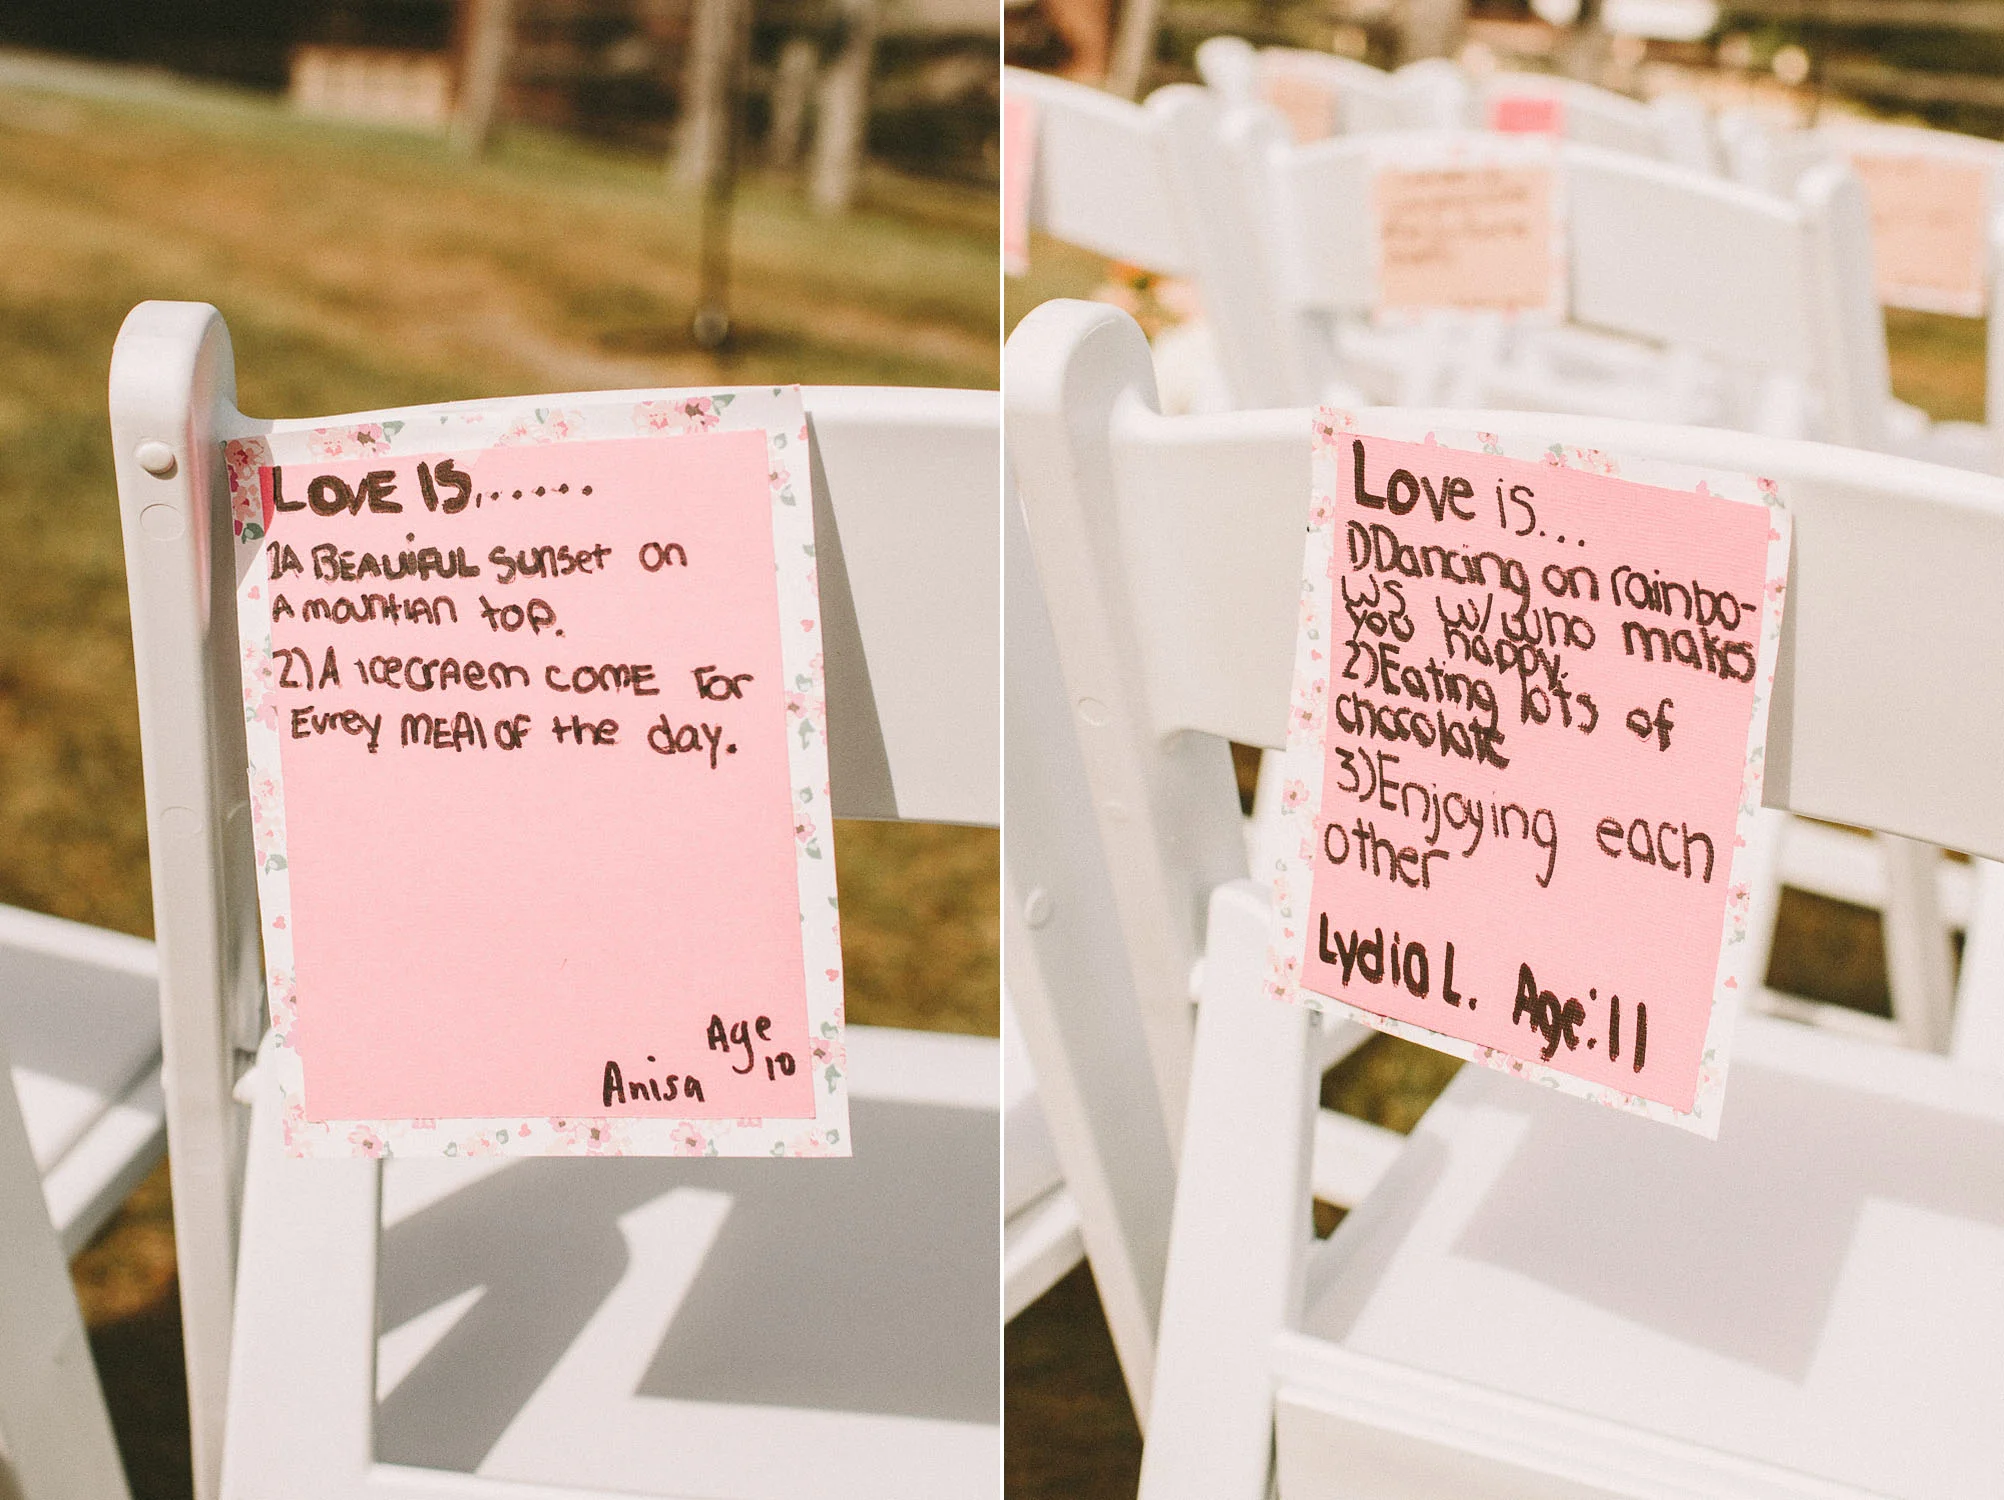 LOVE IS.......
1)A BEAUiFUL sunset on
A mountian top.
2)A icecraem comE For
Evrey MEAl OF the day.
Age
10
Anisa
Love is...
1)Dancing on rainbo-
ws w/ who makes
you happy.
2)Eating lots of
chocolate
3)Enjoying each
other
Lydia L. Age: 11